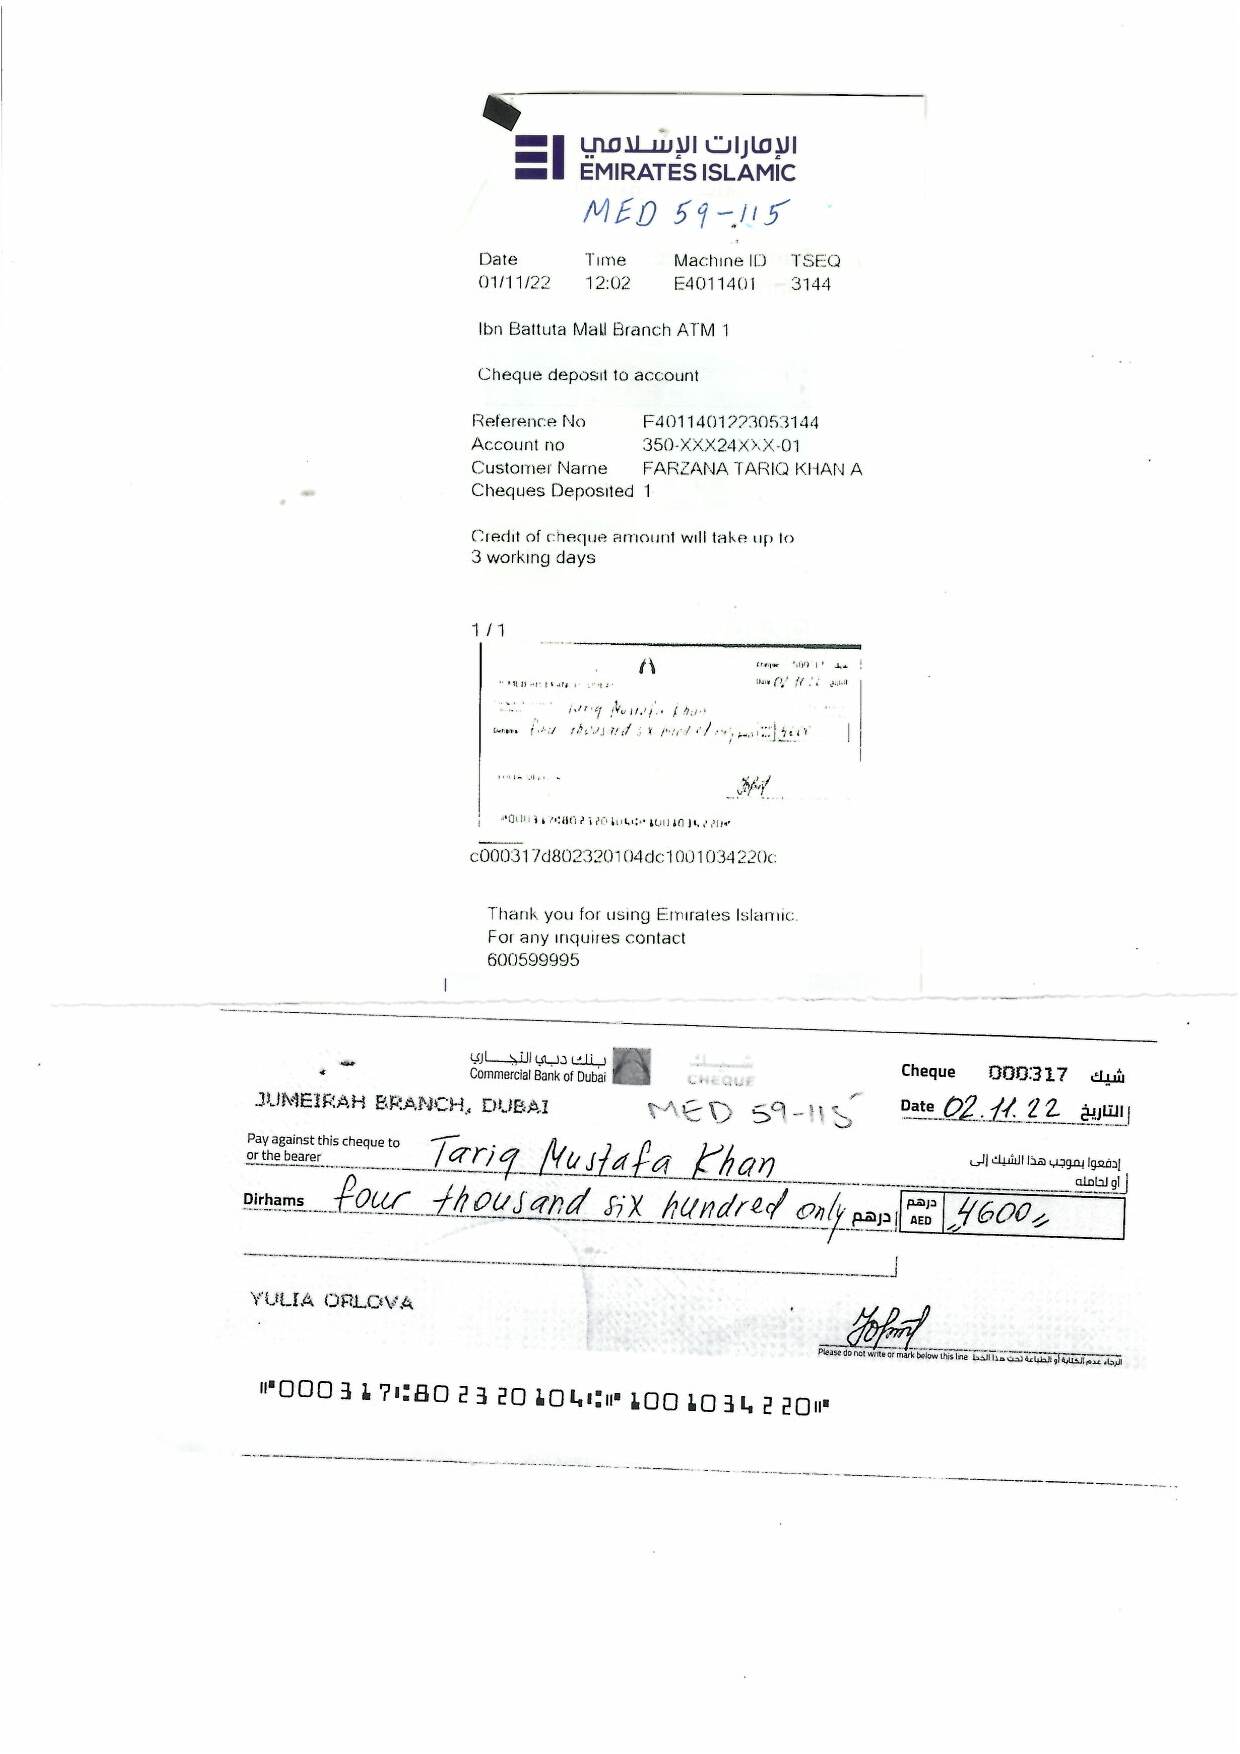 الإمارات الإسلامي
EMIRATES ISLAMIC
MED 59-115
Date Time Machine ID TSEQ
01/11/22 12:02 E4011401 3144
Ibn Battuta Mall Branch ATM 1
Cheque deposit to account
Reference No F4011401223053144
Account no 350-XXX24XXX-01
Customer Name FARZANA TARIQ KHAN A
Cheques Deposited 1
Credit of cheque amount will take up to
3 working days
1 / 1
Tariq Mustafa Khan
c000317d802320104dc1001034220c
Thank you for using Emirates Islamic.
For any inquires contact
600599995
بنك دبي التجاري
Commercial Bank of Dubai
شيك
CHEQUE
Cheque 000317 شيك
JUMEIRAH BRANCH, DUBAI
MED 59-115
Date 02.11.22 التاريخ
Pay against this cheque to
or the bearer
Tariq Mustafa Khan
إدفعوا بموجب هذا الشيك إلى
أو لحامله
Dirhams four thousand six hundred only درهم
درهم
AED
4600
YULIA ORLOVA
Please do not write or mark below this line الرجاء عدم الكتابة أو الطباعة تحت هذا الخط
⑈000317⑆802320104⑆⑈1001034220⑈